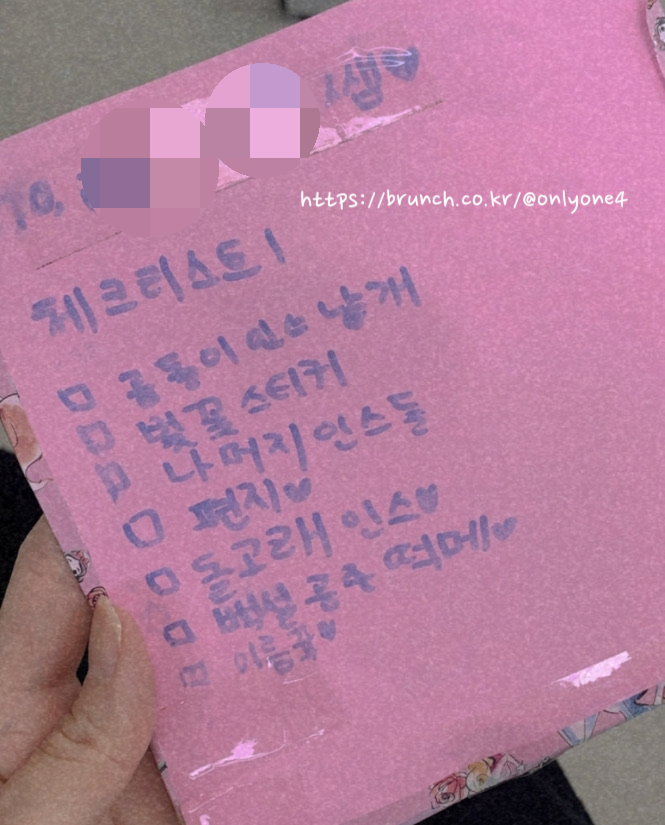 TO. 샘♥
https://brunch.co.kr/@onlyone4
체크리스트!
□ 공동이 인스 낱개
□ 벚꽃 스티커
□ 나머지 인스들
□ 편지♥
□ 돌고래 인스♥
□ 백설 공주 떡메♥
□ 이름꽃♥